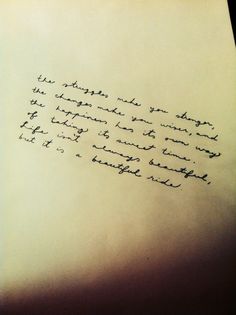 the struggles make you stronger,
the changes make you wiser, and
the happiness has its own way
of taking its sweet time.
life isn't always beautiful,
but it is a beautiful ride